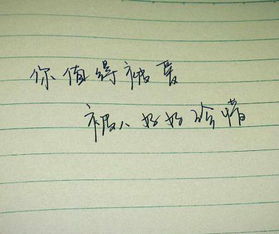 你值得被爱
被人好好珍惜